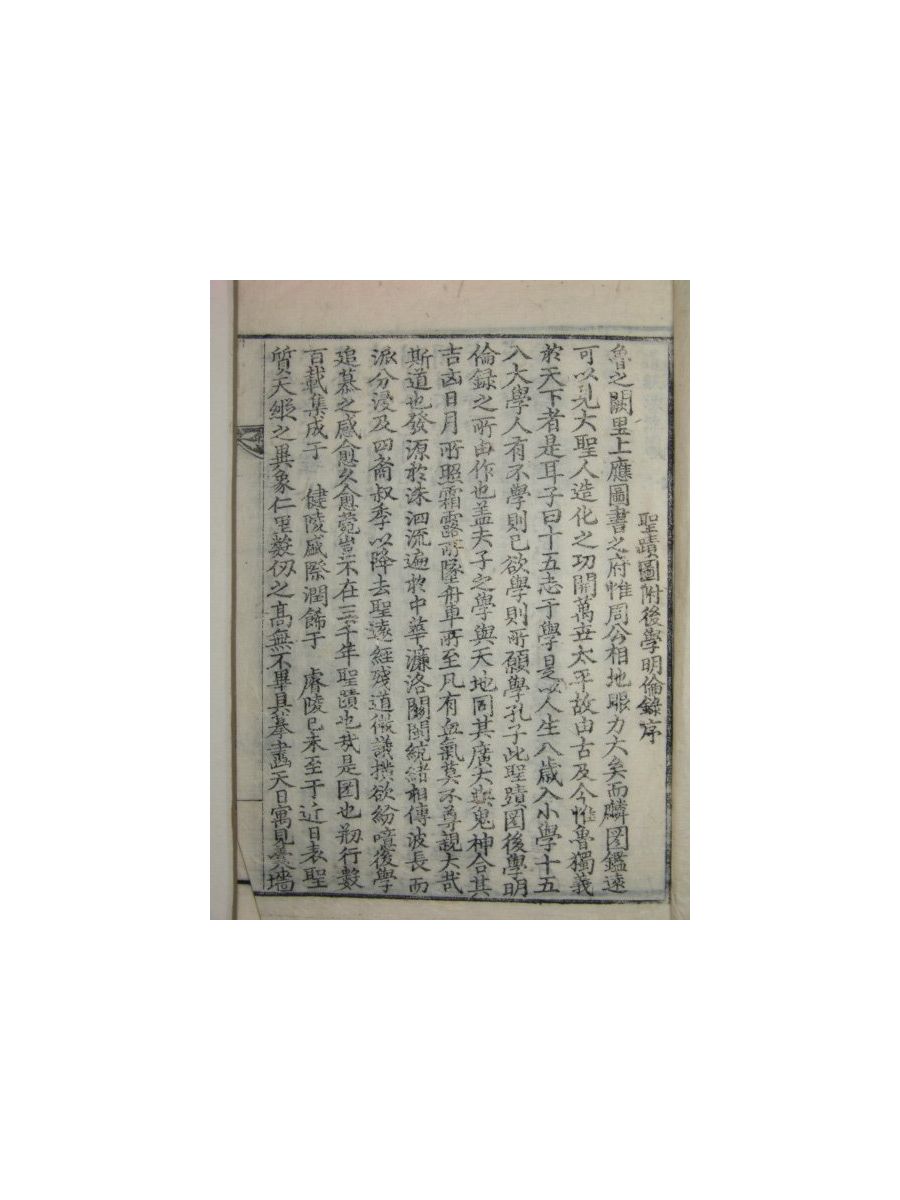 聖蹟圖附後學明倫錄序
魯之闕里上應圖書之府惟周公相地眼力大矣而麟圖鑑遠
可以見大聖人造化之功開萬世太平故由古及今惟魯獨義
於天下者是耳子曰十五志于學是以人生八歲入小學十五
入大學人有不學則已欲學則所願學孔子此聖蹟圖後學明
倫錄之所由作也盖夫子之學與天地同其廣大與鬼神合其
吉凶日月所照霜露所墜舟車所至凡有血氣莫不尊親大哉
斯道也發源於洙泗流遍於中華濂洛關閩統緖相傳波長而
派分浸及四裔叔季以降去聖遠經殘道微議攢欲紛噫後學
追慕之感愈久愈菀豈不在三千年聖蹟也哉是图也刱行數
百載集成于 健陵盛際潤餙于 睿陵己未至于近日表聖
質天縱之異象仁里數仞之高無不畢具摹畫天日寓見羹墻